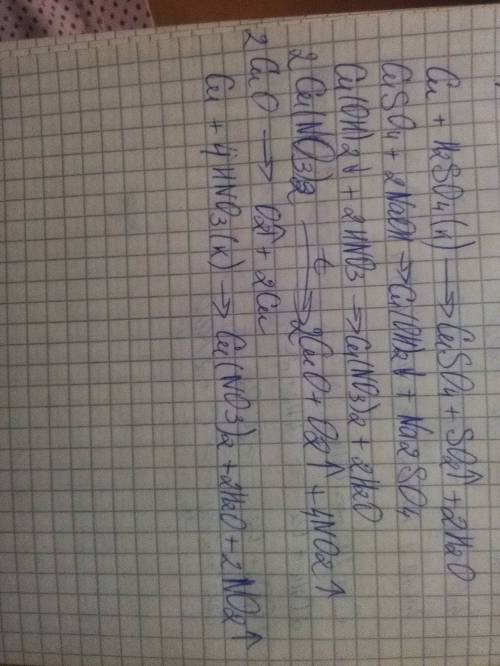 Cu + H2SO4(к) → CuSO4 + SO2↑ + 2H2O
CuSO4 + 2NaOH → Cu(OH)2↓ + Na2SO4
Cu(OH)2↓ + 2HNO3 → Cu(NO3)2 + 2H2O
2Cu(NO3)2 t→ 2CuO + O2↑ + 4NO2↑
2CuO → O2↑ + 2Cu
Cu + 4HNO3(к) → Cu(NO3)2 + 2H2O + 2NO2↑